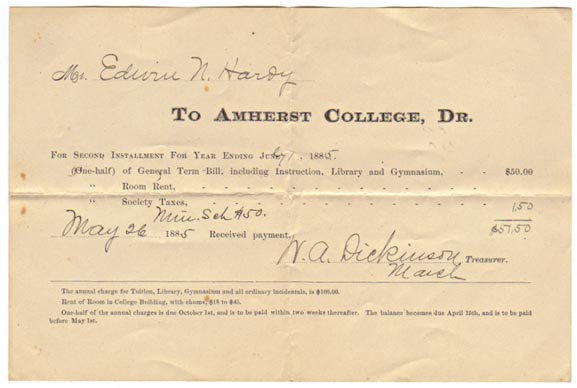 Mr. Edwin N. Hardy
To Amherst College, Dr.
For Second Installment For Year Ending July 1, 1885.
(One-half) of General Term Bill, including Instruction, Library and Gymnasium, $50.00
" Room Rent,
" Society Taxes, 1.50
Min. Sch $50.
May 26 1885 Received payment, $51.50
W. A. Dickinson Treasurer.
March
The annual charge for Tuition, Library, Gymnasium and all ordinary incidentals, is $100.00.
Rent of Room in College Building, with chums, $18 to $45.
One-half of the annual charges is due October 1st, and is to be paid within two weeks thereafter. The balance becomes due April 15th, and is to be paid
before May 1st.